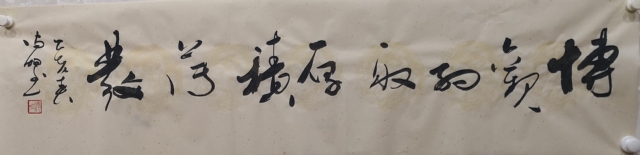 博觀約取厚積薄發